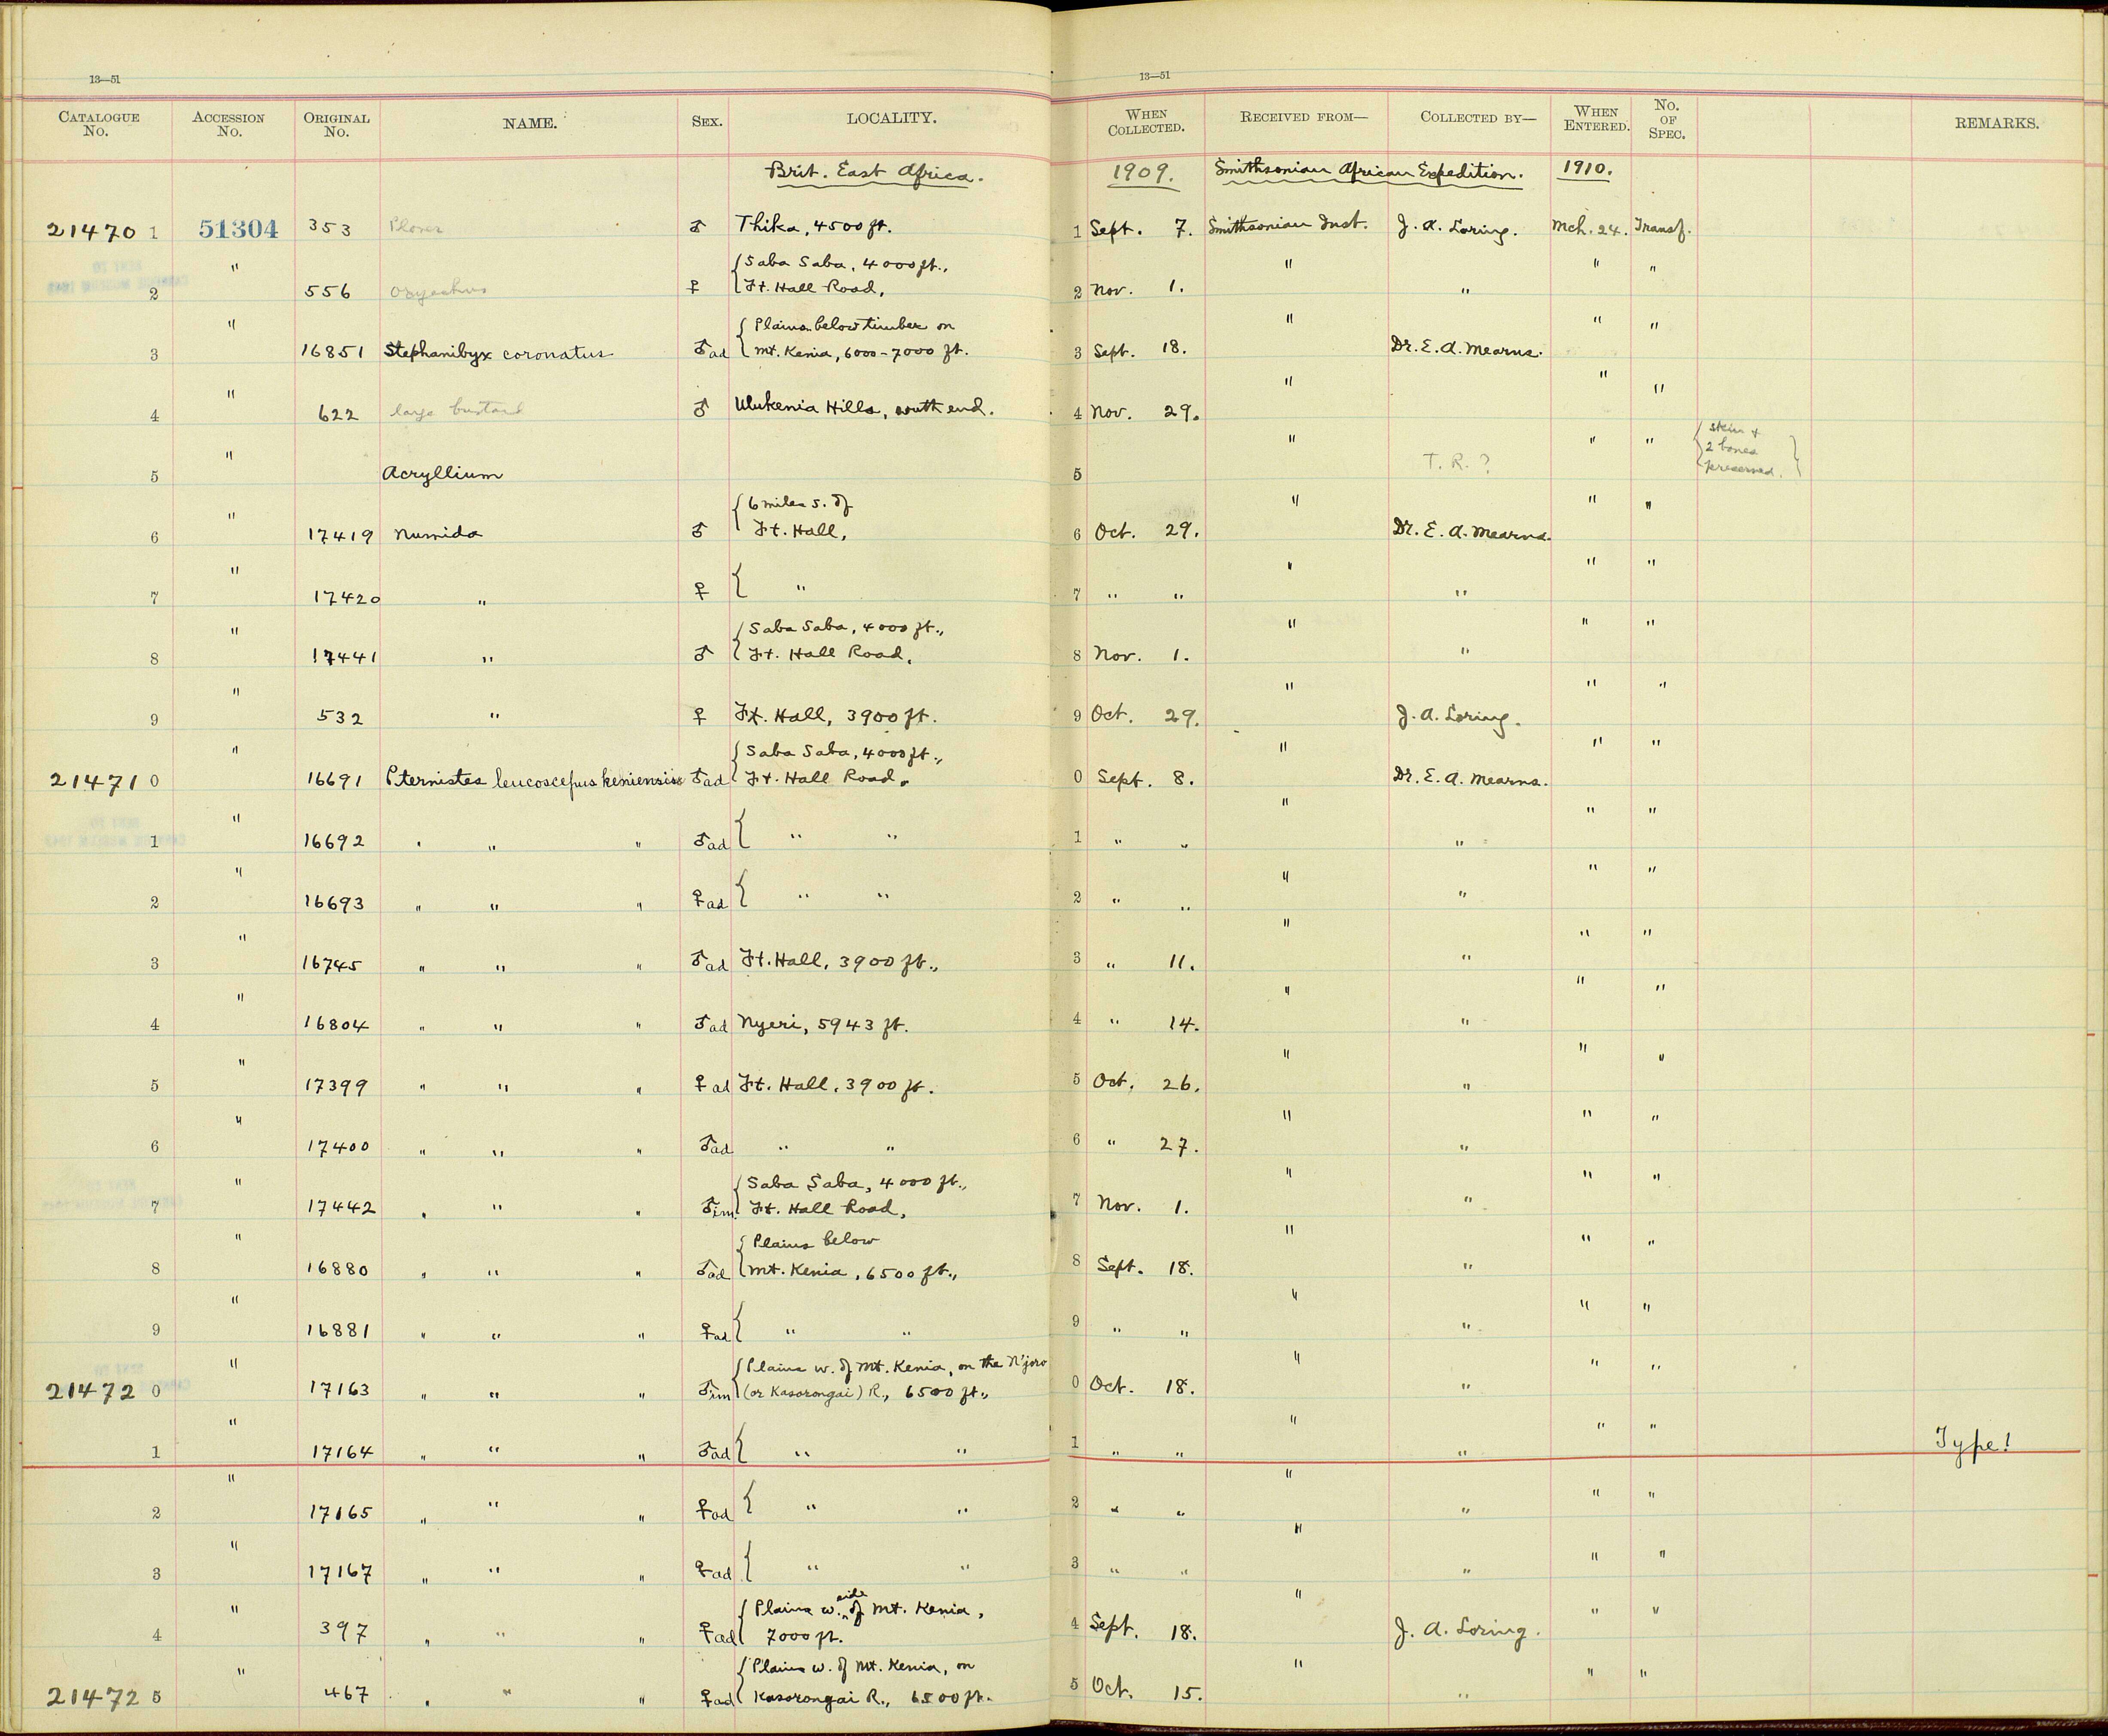 13—51
13—51
CATALOGUE No. ACCESSION No. ORIGINAL No. NAME. SEX. LOCALITY. WHEN COLLECTED. RECEIVED FROM— COLLECTED BY— WHEN ENTERED. No. OF SPEC. REMARKS.
Brit. East Africa. 1909. Smithsonian African Expedition. 1910.
21470 1 51304 353 Plover ♂ Thika, 4500 ft. 1 Sept. 7. Smithsonian Inst. J. A. Loring. Mch. 24. Transf.
" { Saba Saba, 4000 ft., " " "
2 556 ♀ Ft. Hall Road, 2 Nov. 1. "
" { Plains below timber on " " "
3 16851 Stephanibyx coronatus ♂ad Mt. Kenia, 6000-7000 ft. 3 Sept. 18. Dr. E. A. Mearns.
" " " "
4 622 large bustard ♂ Ulukenia Hills, south end. 4 Nov. 29.
" " " " { skin & 2 bones preserved. }
5 Acryllium 5 T. R. ?
" { 6 miles S. of " " "
6 17419 Numida ♂ Ft. Hall, 6 Oct. 29. Dr. E. A. Mearns.
" " " "
7 17420 " ♀ { " 7 " " "
" { Saba Saba, 4000 ft., " " "
8 17441 " ♂ Ft. Hall Road, 8 Nov. 1. "
" " " "
9 532 " ♀ Ft. Hall, 3900 ft. 9 Oct. 29. J. A. Loring.
" { Saba Saba, 4000 ft., " " "
21471 0 16691 Pternistes leucoscepus keniensis ♂ad Ft. Hall Road. 0 Sept. 8. Dr. E. A. Mearns.
" " " "
1 16692 " " " ♂ad { " " 1 " " "
" " " "
2 16693 " " " ♀ad { " " 2 " " "
" " " "
3 16745 " " " ♂ad Ft. Hall, 3900 ft., 3 " 11. "
" " " "
4 16804 " " " ♂ad Nyeri, 5943 ft. 4 " 14. "
" " " "
5 17399 " " " ♀ad Ft. Hall, 3900 ft. 5 Oct. 26. "
" " " "
6 17400 " " " ♂ad " " 6 " 27. "
" { Saba Saba, 4000 ft., " " "
7 17442 " " " ♂im. Ft. Hall Road, 7 Nov. 1. "
" { Plains below " " "
8 16880 " " " ♂ad Mt. Kenia, 6500 ft., 8 Sept. 18. "
" " " "
9 16881 " " " ♀ad { " " 9 " " "
" { Plains w. of Mt. Kenia, on the N'joro " " "
21472 0 17163 " " " ♂im (or Kasorongai) R., 6500 ft., 0 Oct. 18. "
" " " "
1 17164 " " " ♂ad { " " 1 " " " Type!
" " " "
2 17165 " " " ♀ad { " " 2 " " "
" " " "
3 17167 " " " ♀ad { " " 3 " " "
" { Plains w. side of Mt. Kenia, " " "
4 397 " " " ♀ad 7000 ft. 4 Sept. 18. J. A. Loring.
" { Plains w. of Mt. Kenia, on " " "
21472 5 467 " " " ♀ad Kasorongai R., 6500 ft. 5 Oct. 15. "